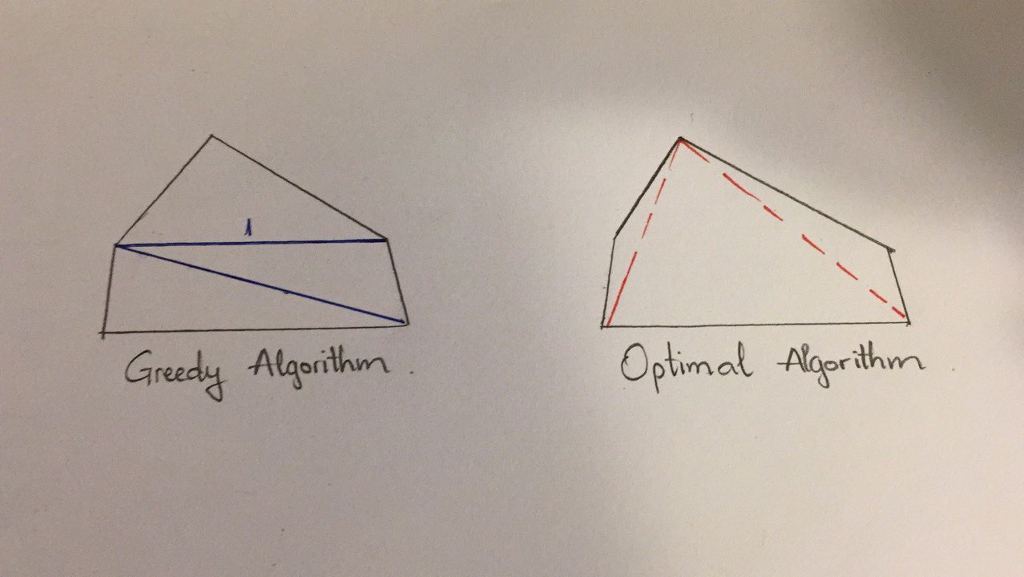 1
Greedy Algorithm .
Optimal Algorithm .